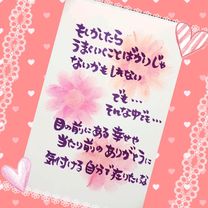 もしかしたら
うまくいくことばかりじゃ
ないかもしれない
でも…
それな中でも…
目の前にある 幸せや
当たり前の ありがとうに
気付ける 自分で在りたいな